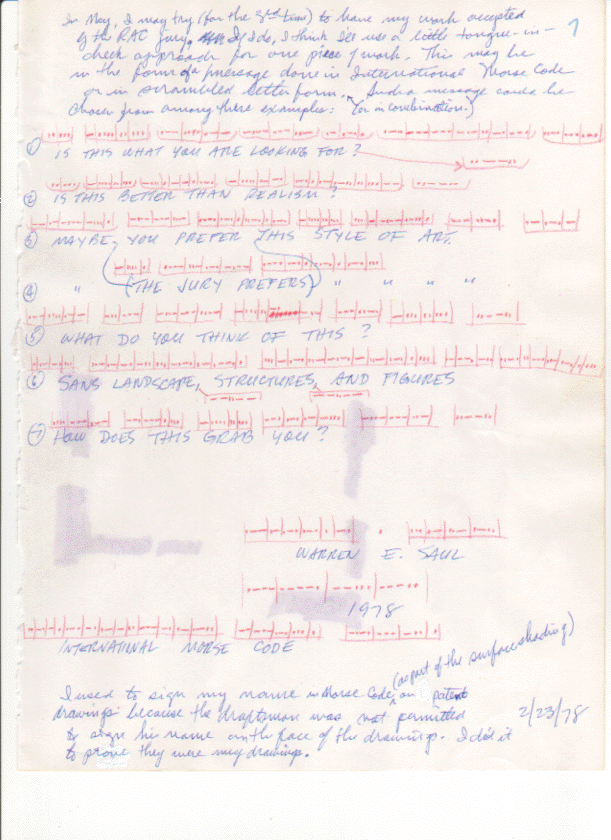 In May, I may try (for the 3rd time) to have my work accepted
by the RAC jury. If I do, I think I'll use a little tongue-in-
check approach for one piece of work. This may be
in the form of a message done in International Morse Code
or in scrambled letter form. Such a message could be
chosen from among these examples: (or in combination.)
① IS THIS WHAT YOU ARE LOOKING FOR?
② IS THIS BETTER THAN REALISM?
③ MAYBE, YOU PREFER THIS STYLE OF ART.
④ " (THE JURY PREFERS) " " " "
⑤ WHAT DO YOU THINK OF THIS?
⑥ SANS LANDSCAPE, STRUCTURES, AND FIGURES
⑦ HOW DOES THIS GRAB YOU?
WARREN E. SAUL
1978
INTERNATIONAL MORSE CODE
(as part of the surface shading)
I used to sign my name in Morse Code, on patent
drawings because the draftsman was not permitted
to sign his name on the face of the drawings. I did it
to prove they were my drawings.
2/23/78